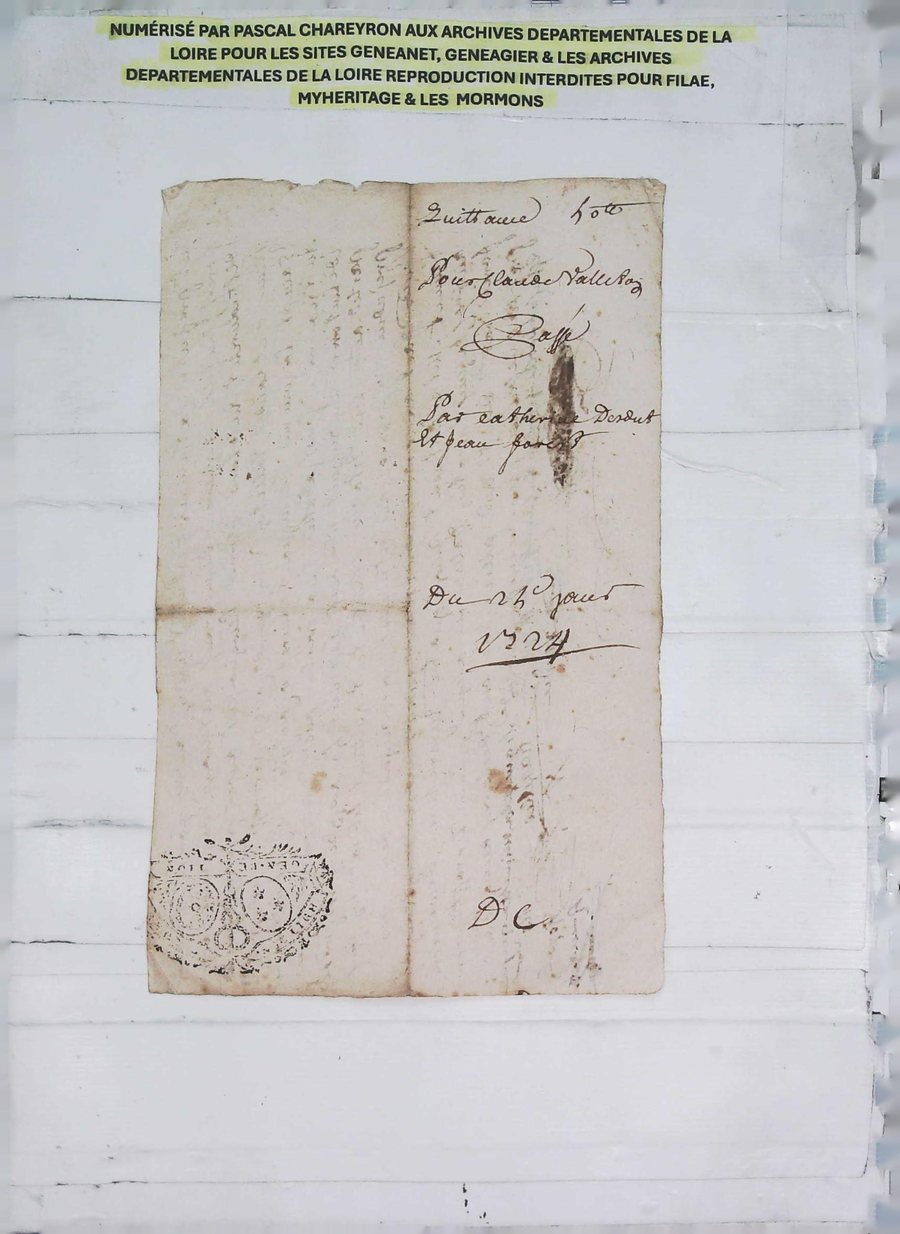 NUMÉRISÉ PAR PASCAL CHAREYRON AUX ARCHIVES DEPARTEMENTALES DE LA
LOIRE POUR LES SITES GENEANET, GENEAGIER & LES ARCHIVES
DEPARTEMENTALES DE LA LOIRE REPRODUCTION INTERDITES POUR FILAE,
MYHERITAGE & LES MORMONS
Quittance
Pour Claude Valleton
Passé
Par Catherine
Et Jean forest
Du janv
1724
D C
GEN LION